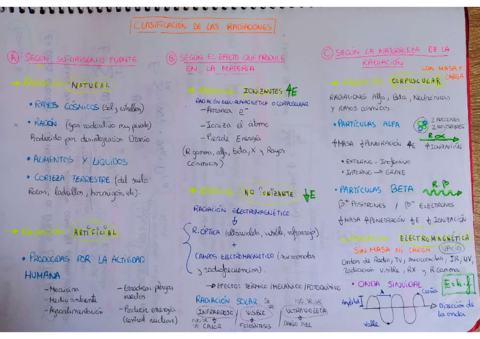 CLASIFICACIÓN DE LAS RADIACIONES
A SEGÚN SU ORIGEN O FUENTE
NATURAL
• RAYOS CÓSMICOS (sol, estrellas)
• RADÓN (gas radiactivo muy pesado)
Producido por desintegración Uranio
• ALIMENTOS Y LÍQUIDOS
• CORTEZA TERRESTRE (del suelo
Rocas, ladrillos, hormigón etc)
ARTIFICIAL
• PRODUCIDAS POR LA ACTIVIDAD
HUMANA
- Medicina
- Medio ambiente
- Agroalimentación
- Producir energía
(central nuclear)
B SEGÚN EL EFECTO QUE PRODUCE
EN LA MATERIA
IONIZANTES ↑E
RADIACIÓN ELECTROMAGNÉTICA O CORPUSCULAR
- Arranca e⁻
- Ioniza el átomo
- Pierde Energía
(R gamma, alfa, beta, X y Rayos
Cósmicos)
NO IONIZANTE ↓E
RADIACIÓN ELECTROMAGNÉTICA
↓
R. ÓPTICA (ultravioleta, visible, infrarrojo)
+
CAMPOS ELECTROMAGNÉTICO (microondas
y radiofrecuencias).
→ EFECTOS TÉRMICO / MECÁNICO / FOTOQUÍMICO
RADIACIÓN SOLAR
INFRARROJO
CALOR
VISIBLE
FOTOSÍNTESIS
ULTRAVIOLETA
DAÑO PIEL
C SEGÚN LA NATURALEZA DE LA
RADIACIÓN
CON MASA Y
CARGA
CORPUSCULAR
RADIACIONES Alfa, Beta, Neutrones
y Rayos cósmicos
• PARTÍCULAS ALFA
2 PROTONES
2 NEUTRONES
R α
↑MASA ↓PENETRACIÓN ↑E
↑IONIZACIÓN
- EXTERNO - Inofensivo
- INTERNO → GRAVE
• PARTÍCULAS BETA
R β
β⁺ POSITRONES / β⁻ ELECTRONES
↓MASA ↑PENETRACIÓN ↓E ↓IONIZACIÓN
ELECTROMAGNÉTICA
SIN MASA NI CARGA
Ondas de Radio, TV, microondas, IR, UV,
radiación visible, RX y R Gamma
• ONDA SINUSOIDAL
E = h·f
Amplitud
Cresta
Valle
Dirección de
la onda